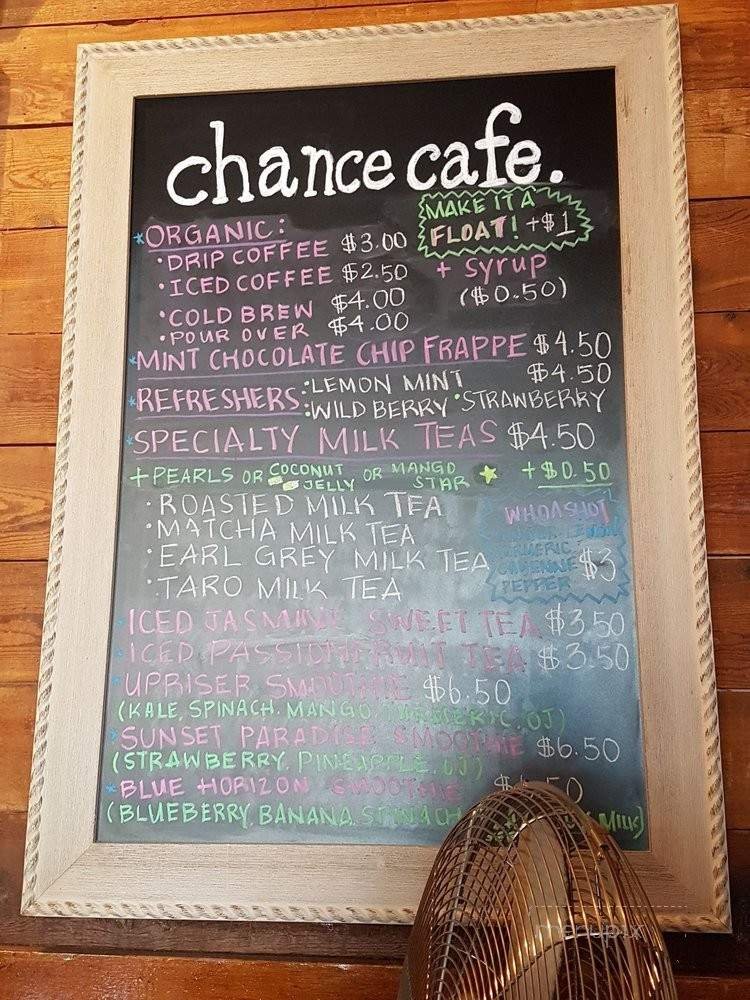 chance cafe.
MAKE IT A
FLOAT! +$1
*ORGANIC:
•DRIP COFFEE $3.00
•ICED COFFEE $2.50
+ syrup
($0.50)
•COLD BREW $4.00
•POUR OVER $4.00
*MINT CHOCOLATE CHIP FRAPPE $4.50
*REFRESHERS: •LEMON MINT $4.50
•WILD BERRY •STRAWBERRY
*SPECIALTY MILK TEAS $4.50
+PEARLS OR COCONUT JELLY OR MANGO STAR +$0.50
•ROASTED MILK TEA
•MATCHA MILK TEA
•EARL GREY MILK TEA
•TARO MILK TEA
WHOASHOT
TURMERIC,
CAYENNE
PEPPER $3
*ICED JASMINE SWEET TEA $3.50
*ICED PASSIONFRUIT TEA $3.50
*UPRISER SMOOTHIE $6.50
(KALE, SPINACH, MANGO, TURMERIC, OJ)
*SUNSET PARADISE SMOOTHIE $6.50
(STRAWBERRY, PINEAPPLE, OJ)
*BLUE HORIZON SMOOTHIE
(BLUEBERRY, BANANA, SPINACH MILK)
menupix